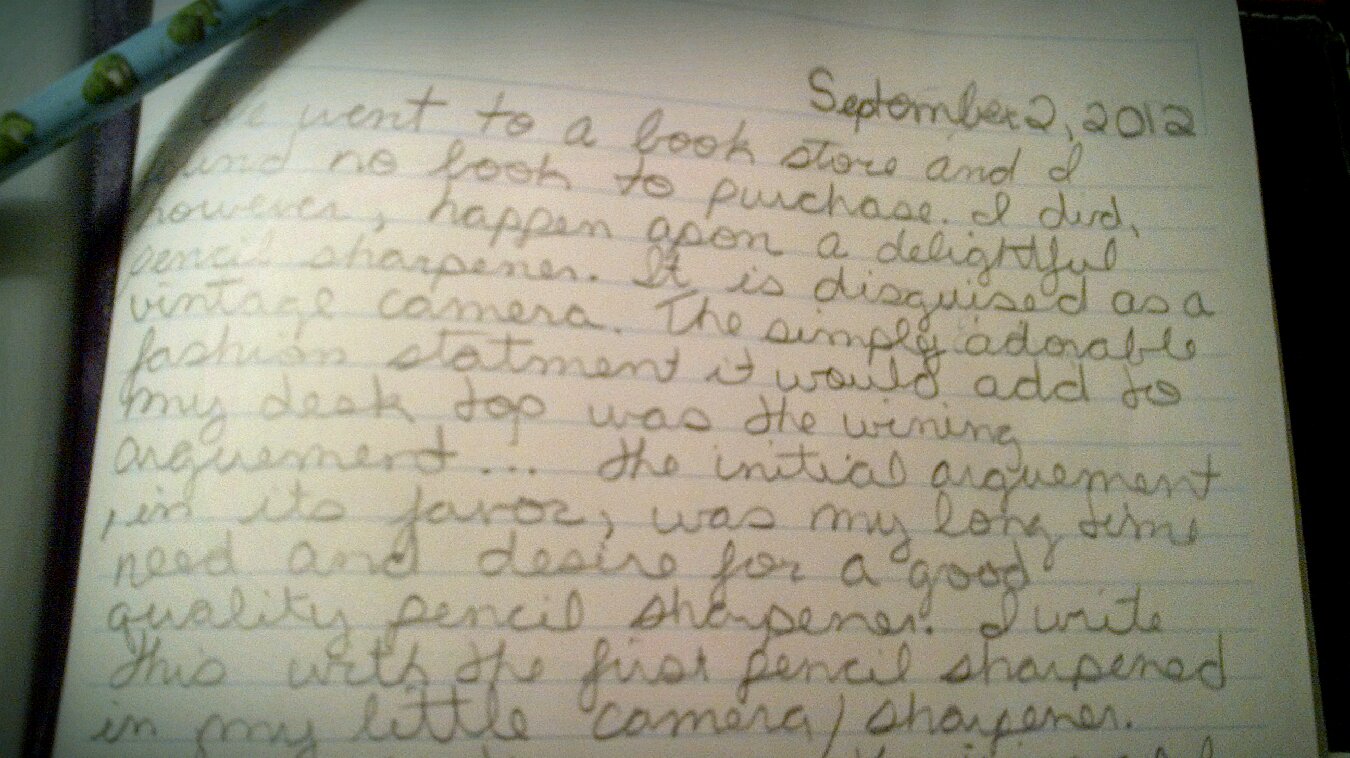 September 2, 2012
went to a book store and I
found no book to purchase. I did,
however, happen apon a delightful
pencil sharpener. It is disguised as a
vintage camera. The simply adorable
fashion statment it would add to
my desk top was the wining
arguement... the initial arguement
, in its favor, was my long time
need and desire for a good
quality pencil sharpener. I write
this with the first pencil sharpened
in my little camera/sharpener.